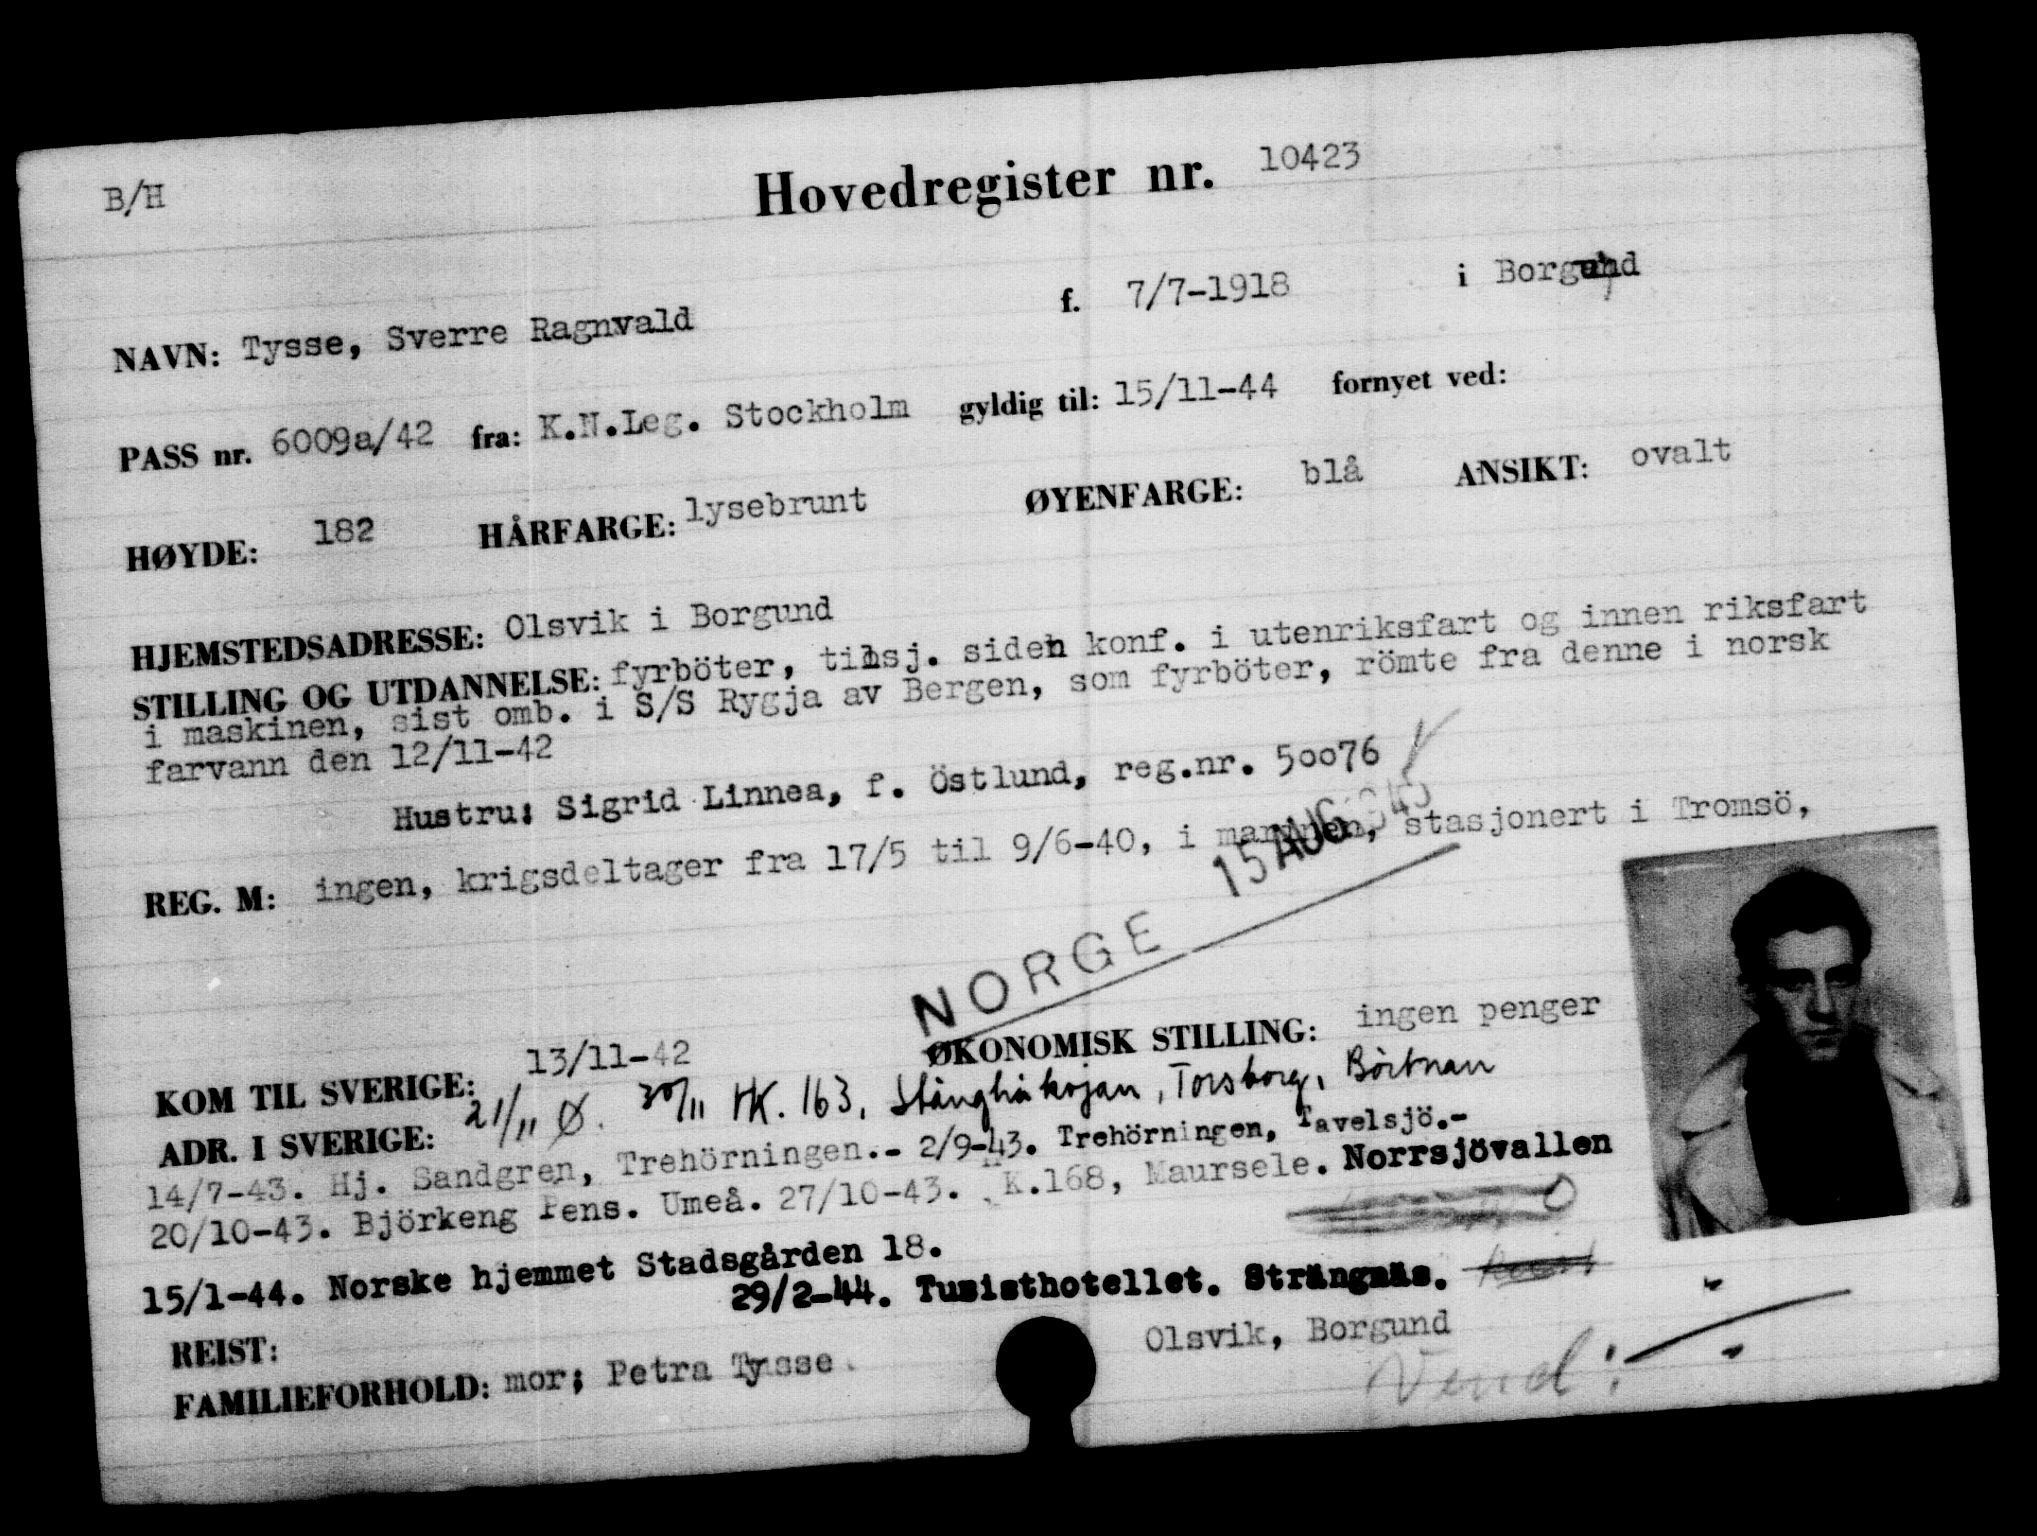 B/H
Hovedregister nr. 10423
NAVN: Tysse, Sverre Ragnvald f. 7/7-1918 i Borgund
PASS nr. 6009a/42 fra: K.N.Leg. Stockholm gyldig til: 15/11-44 fornyet ved:
HØYDE: 182 HÅRFARGE: lysebrunt ØYENFARGE: blå ANSIKT: ovalt
HJEMSTEDSADRESSE: Olsvik i Borgund
STILLING OG UTDANNELSE: fyrböter, tilsj. siden konf. i utenriksfart og innen riksfart
i maskinen, sist omb. i S/S Rygja av Bergen, som fyrböter, römte fra denne i norsk
farvann den 12/11-42
Hustru: Sigrid Linnea, f. Östlund, reg.nr. 50076
REG. M: ingen, krigsdeltager fra 17/5 til 9/6-40, i marinen, stasjonert i Tromsö,
NORGE 15 AUG 1945
KOM TIL SVERIGE: 13/11-42 ØKONOMISK STILLING: ingen penger
ADR. I SVERIGE: 21/11 Ø. 30/11 HK. 163, Torsborg, Börtnan
14/7-43. Hj. Sandgren, Trehörningen.- 2/9-43. Trehörningen, Tavelsjö.-
20/10-43. Björkeng Pens. Umeå. 27/10-43. HK.168, Maursele. Norrsjövallen
15/1-44. Norske hjemmet Stadsgården 18.
29/2-44. Turisthotellet. Strängnäs.
REIST:
FAMILIEFORHOLD: mor; Petra Tysse. Olsvik, Borgund
Vend: